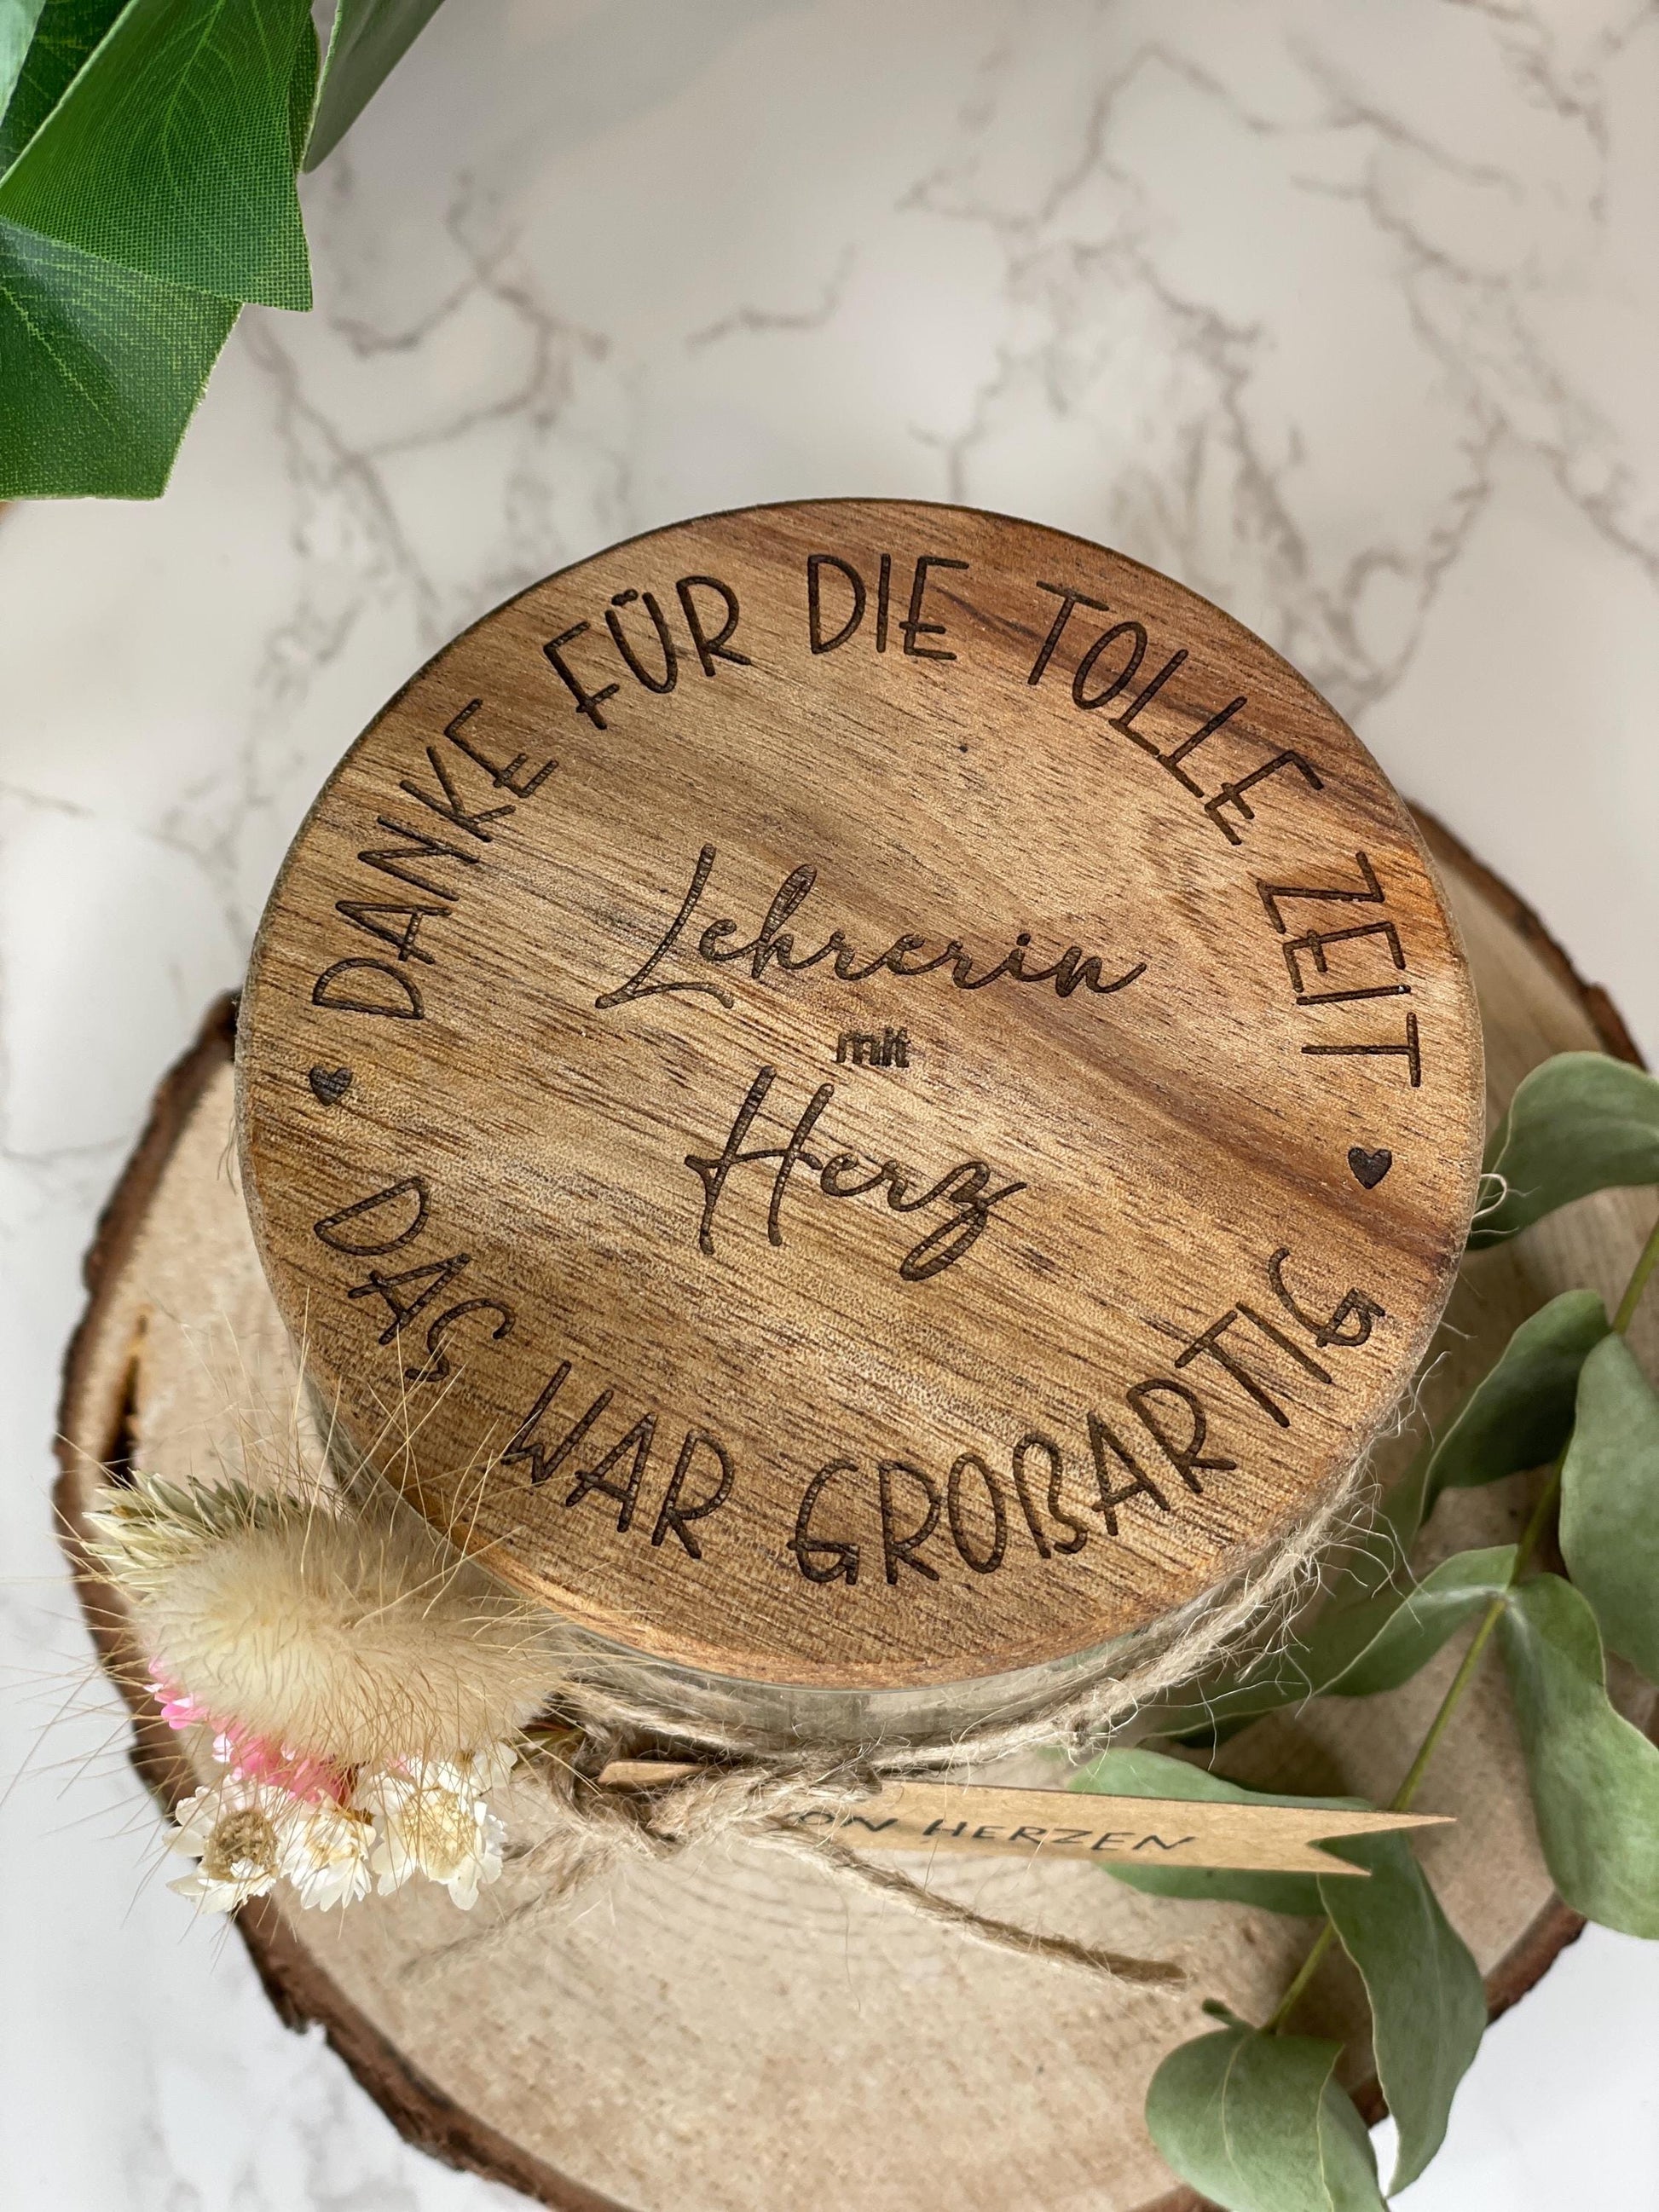 DANKE FÜR DIE TOLLE ZEIT
Lehrerin
mit
Herz
DAS WAR GROßARTIG
HERZEN